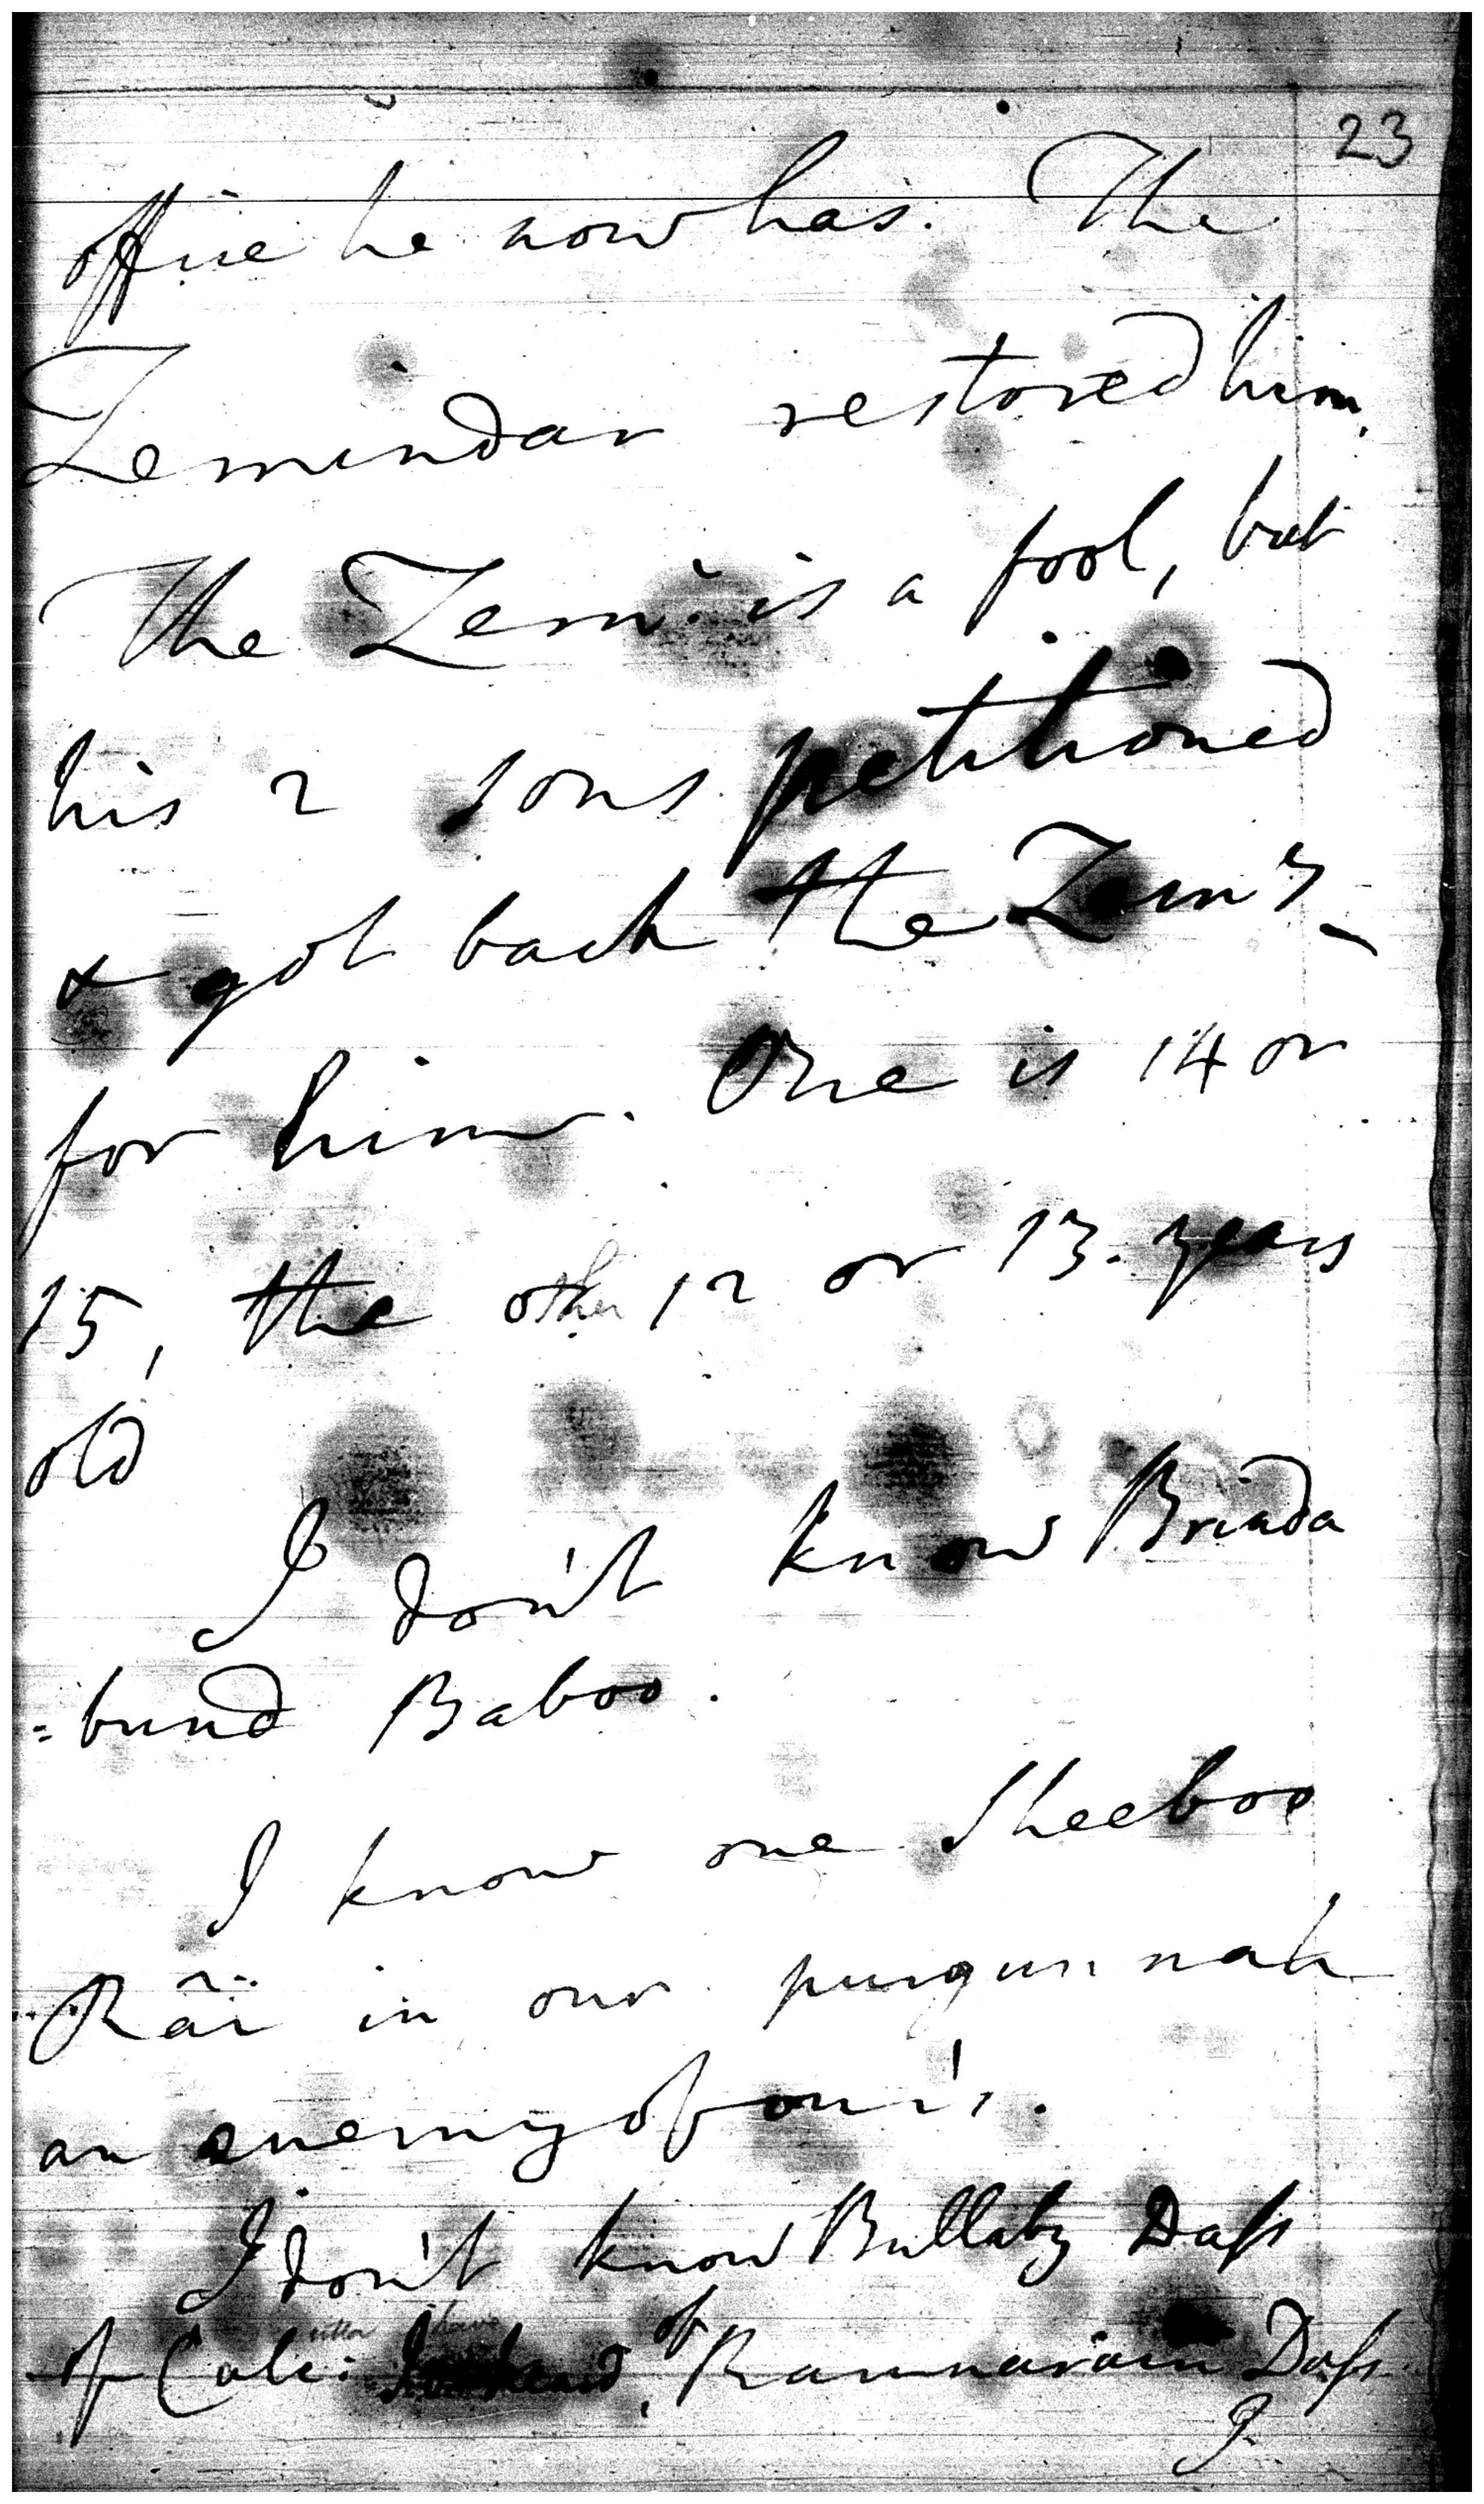 23
office he now has. The
Zemindar restored him.
The Zemr. is a fool, but
his 2 sons petitioned
& got back the Zemy
for him. One is 14 or
15, the other 12 or 13. years
old
I don't know Brinda
=bund Baboo.
I know one Sheeboo
Rãi in our purgunnah
an enemy of our's.
I don't know Bullaby Dass
of Calc: I heard of Ramnarain Dass
I